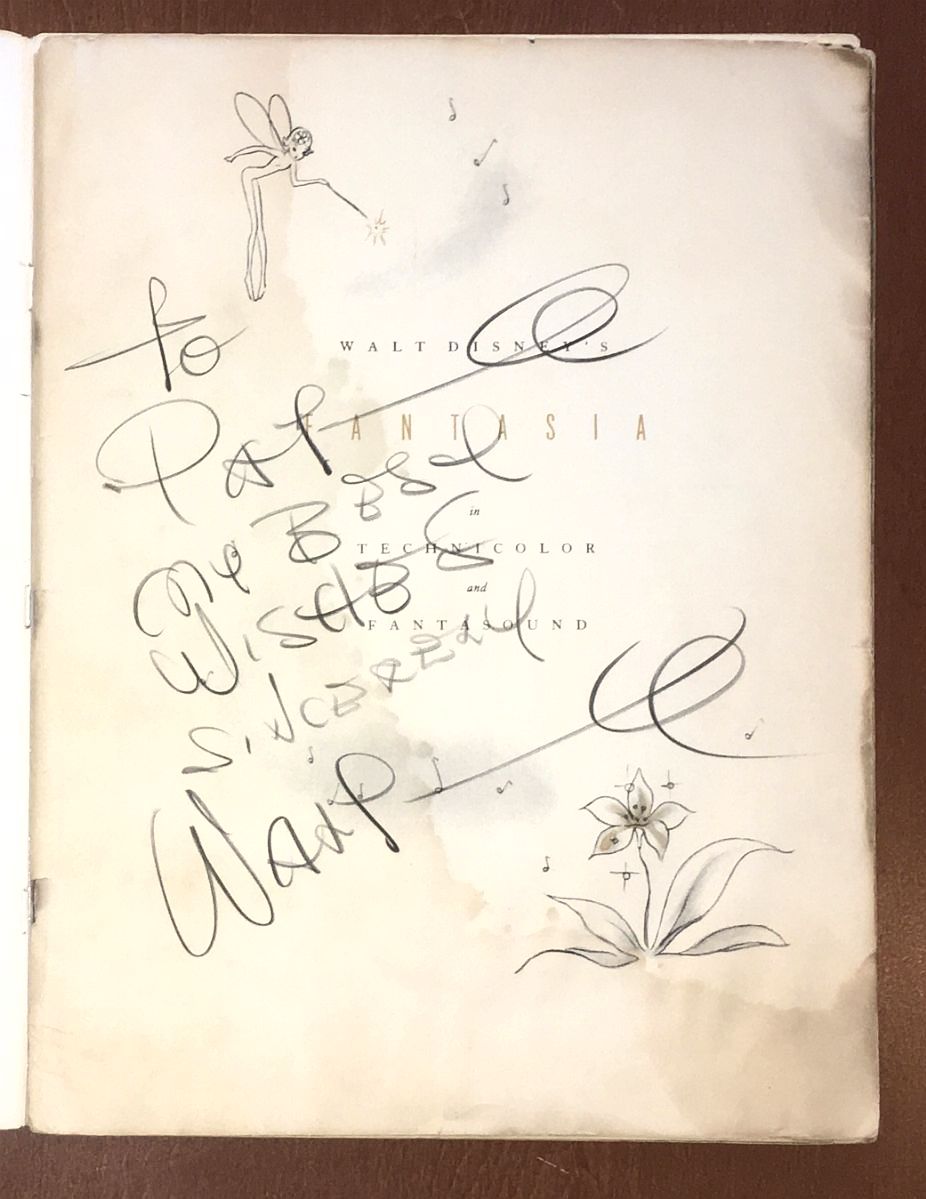 WALT DISNEY'S
FANTASIA
in
TECHNICOLOR
and
FANTASOUND
To
Pat
My Best
Wishes
Sincerely
Walt